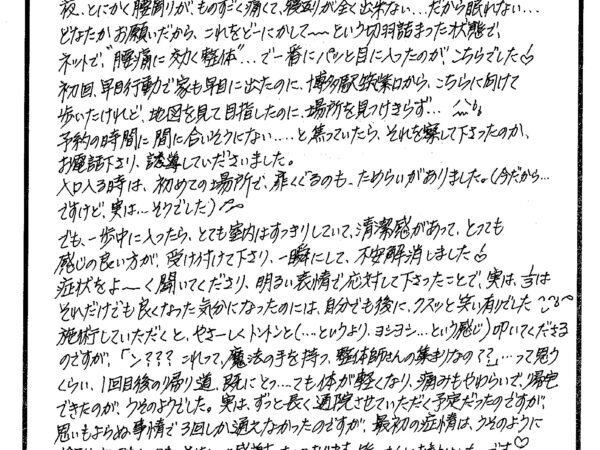 夜、とにかく腰周りが、ものすごく痛くて、寝返りが全く出来ない…だから眠れない…
どなたかお願いだから、これをどーにかして〜〜という切羽詰まった状態で、
ネットで、"腰痛に効く整体"…で一番にパッと目に入ったのが、こちらでした♡
初回、早目行動で家も早目に出たのに、博多駅筑紫口から、こちらに向けて
歩いたけれど、地図を見て目指したのに、場所を見つけきらず…
予約の時間に間に合いそうにない…と焦っていたら、それを察して下さったのか、
お電話下さり、誘導してくださいました。
入口入る時は、初めての場所で、扉くぐるのも、ためらいがありました。(今だから…
ですけど、実は…そうでした)
でも、一歩中に入ったら、とても室内はすっきりしていて、清潔感があって、とっても
感じの良い方が、受け付けて下さり、一瞬にして、不安解消しました♡
症状をよ〜〜く聞いてくださり、明るい表情で応対して下さったことで、実は、
それだけでも良くなった気分になったのには、自分でも後に、クスッと笑い有りでした
施術していただくと、やさーしくトントンと(…というより、ヨシヨシ…という感じ)叩いてくださる
のですが、「ン??? これって、魔法の手を持つ、整体師さんの集まりなの??」…って思う
くらい、1回目後の帰り道、既にとっ…ても体が軽くなり、痛みもやわらいで、帰宅
できたのが、うそのようでした。実は、ずっと長く通院させていただく予定だったのですが、
思いもよらぬ事情で3回しか通えなかったのですが、最初の症状は、うそのように